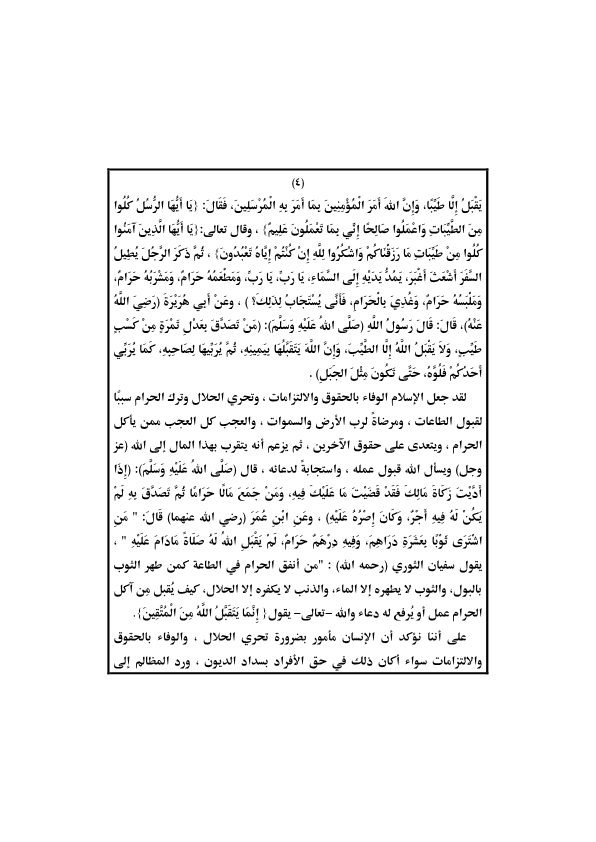 (٤)
يَقْبَلُ إِلَّا طَيِّبًا، وَإِنَّ اللهَ أَمَرَ الْمُؤْمِنِينَ بِمَا أَمَرَ بِهِ الْمُرْسَلِينَ، فَقَالَ: {يَا أَيُّهَا الرُّسُلُ كُلُوا
مِنَ الطَّيِّبَاتِ وَاعْمَلُوا صَالِحًا إِنِّي بِمَا تَعْمَلُونَ عَلِيمٌ} ، وقال تعالى:{يَا أَيُّهَا الَّذِينَ آمَنُوا
كُلُوا مِنْ طَيِّبَاتِ مَا رَزَقْنَاكُمْ وَاشْكُرُوا لِلَّهِ إِنْ كُنْتُمْ إِيَّاهُ تَعْبُدُونَ} ، ثُمَّ ذَكَرَ الرَّجُلَ يُطِيلُ
السَّفَرَ أَشْعَثَ أَغْبَرَ، يَمُدُّ يَدَيْهِ إِلَى السَّمَاءِ، يَا رَبِّ، يَا رَبِّ، وَمَطْعَمُهُ حَرَامٌ، وَمَشْرَبُهُ حَرَامٌ،
وَمَلْبَسُهُ حَرَامٌ، وَغُذِيَ بِالْحَرَامِ، فَأَنَّى يُسْتَجَابُ لِذَلِكَ؟ ) ، وعَنْ أَبِي هُرَيْرَةَ (رَضِيَ اللَّهُ
عَنْهُ)، قَالَ: قَالَ رَسُولُ اللَّهِ (صَلَّى اللهُ عَلَيْهِ وَسَلَّمَ): (مَنْ تَصَدَّقَ بِعَدْلِ تَمْرَةٍ مِنْ كَسْبٍ
طَيِّبٍ، وَلاَ يَقْبَلُ اللَّهُ إِلَّا الطَّيِّبَ، وَإِنَّ اللَّهَ يَتَقَبَّلُهَا بِيَمِينِهِ، ثُمَّ يُرَبِّيهَا لِصَاحِبِهِ، كَمَا يُرَبِّي
أَحَدُكُمْ فَلُوَّهُ، حَتَّى تَكُونَ مِثْلَ الجَبَلِ) .
لقد جعل الإسلام الوفاء بالحقوق والالتزامات ، وتحري الحلال وترك الحرام سببًا
لقبول الطاعات ، ومرضاةً لرب الأرض والسموات ، والعجب كل العجب ممن يأكل
الحرام ، ويتعدى على حقوق الآخرين ، ثم يزعم أنه يتقرب بهذا المال إلى الله (عز
وجل) ويسأل الله قبول عمله ، واستجابةً لدعائه ، قال (صَلَّى اللهُ عَلَيْهِ وَسَلَّمَ): (إِذَا
أَدَّيْتَ زَكَاةَ مَالِكَ فَقَدْ قَضَيْتَ مَا عَلَيْكَ فِيهِ، وَمَنْ جَمَعَ مَالًا حَرَامًا ثُمَّ تَصَدَّقَ بِهِ لَمْ
يَكُنْ لَهُ فِيهِ أَجْرٌ، وَكَانَ إِصْرُهُ عَلَيْهِ) ، وعَنِ ابْنِ عُمَرَ (رضي الله عنهما) قَالَ: " مَنِ
اشْتَرَى ثَوْبًا بِعَشَرَةِ دَرَاهِمَ، وَفِيهِ دِرْهَمٌ حَرَامٌ، لَمْ يَقْبَلِ اللهُ لَهُ صَلَاةً مَادَامَ عَلَيْهِ " ،
يقول سفيان الثوري (رحمه الله) : "من أنفق الحرام في الطاعة كمن طهر الثوب
بالبول، والثوب لا يطهره إلا الماء، والذنب لا يكفره إلا الحلال، كيف يُقبل مِن آكل
الحرام عمل أو يُرفع له دعاء والله -تعالى- يقول{ إِنَّمَا يَتَقَبَّلُ اللَّهُ مِنَ الْمُتَّقِينَ}.
على أننا نؤكد أن الإنسان مأمور بضرورة تحري الحلال ، والوفاء بالحقوق
والالتزامات سواء أكان ذلك في حق الأفراد بسداد الديون ، ورد المظالم إلى